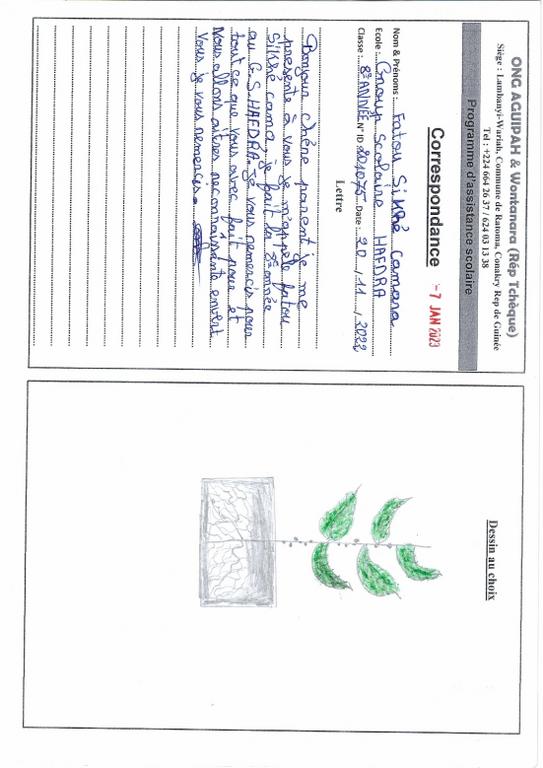 ONG AGUIPAH & Wontanara (Rép Tchèque)
Siège : Lambanyi-Wariah, Commune de Ratoma, Conakry Rep de Guinée
Tel : +224 664 26 37 / 624 03 13 38
Programme d'assistance scolaire
Correspondance
-7 JAN 2023
Nom & Prénoms : Fatou Sikhé Camara
Ecole : Group Scolaire HAFDRA
Classe : 8è ANNÉE N° ID 201075 Date : 20 / 11 / 2022
Lettre
Bonjour chère parent je me
presente à vous je m'appele fatou
Sikhe cama, je fait la 8è année
au G.S.HAFDRA. Je vous remercis pour
tout ce que vous avec fait pour et
Nous allons aitres reconnaissante envert
Vous je vous remercis.
Dessin au choix